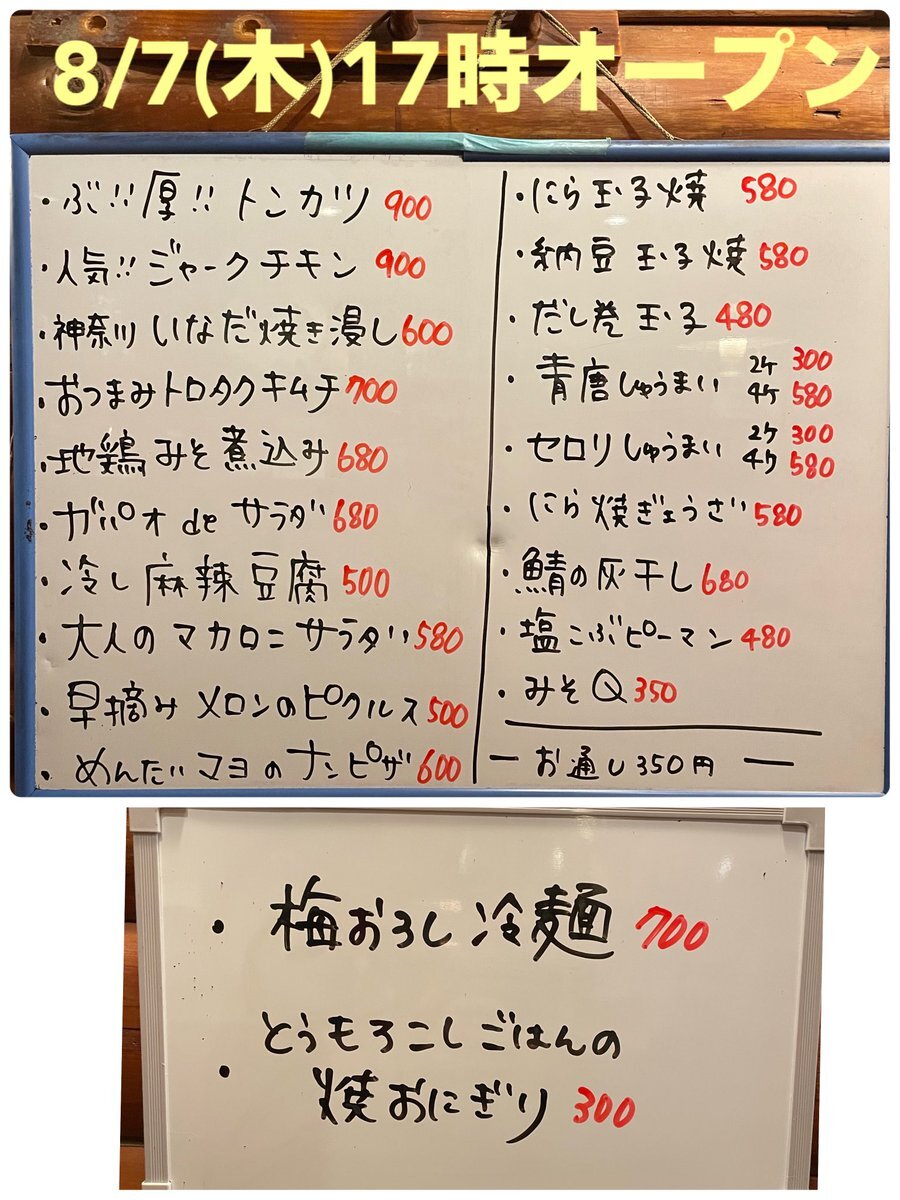 8/7(木)17時オープン
・ぶ!!厚!! トンカツ 900
・人気!! ジャークチキン 900
・神奈川 いなだ焼き浸し 600
・おつまみトロタクキムチ 700
・地鶏みそ煮込み 680
・ガパオ de サラダ 680
・冷し麻辣豆腐 500
・大人のマカロニサラダ 580
・早摘みメロンのピクルス 500
・めんたいマヨのナンピザ 600
・にら玉子焼 580
・納豆玉子焼 580
・だし巻玉子 480
・青唐しゅうまい 2ケ 300
4ケ 580
・セロリしゅうまい 2ケ 300
4ケ 580
・にら焼ぎょうざ 580
・鯖の灰干し 680
・塩こぶピーマン 480
・みそQ 350
ー お通し350円 ー
・梅おろし冷麺 700
・とうもろこしごはんの
焼おにぎり 300